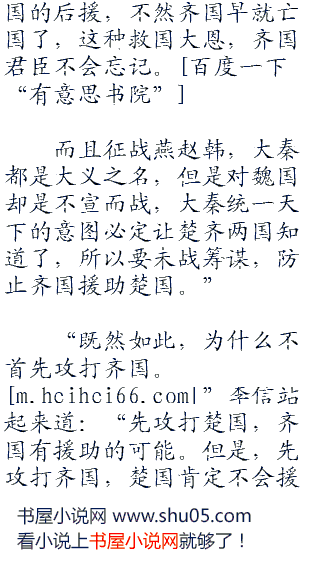 国的后援，不然齐国早就亡
国了，这种救国大恩，齐国
君臣不会忘记。[百度一下
“有意思书院”]
而且征战燕赵韩，大秦
都是大义之名，但是对魏国
却是不宣而战，大秦统一天
下的意图必定让楚齐两国知
道了，所以要未战筹谋，防
止齐国援助楚国。”
“既然如此，为什么不
首先攻打齐国。
[m.hcihci66.com|”李信站
起来道：“先攻打楚国，齐
国有援助的可能。但是，先
攻打齐国，楚国肯定不会援
书屋小说网 www.shu05.com
看小说上书屋小说网就够了！